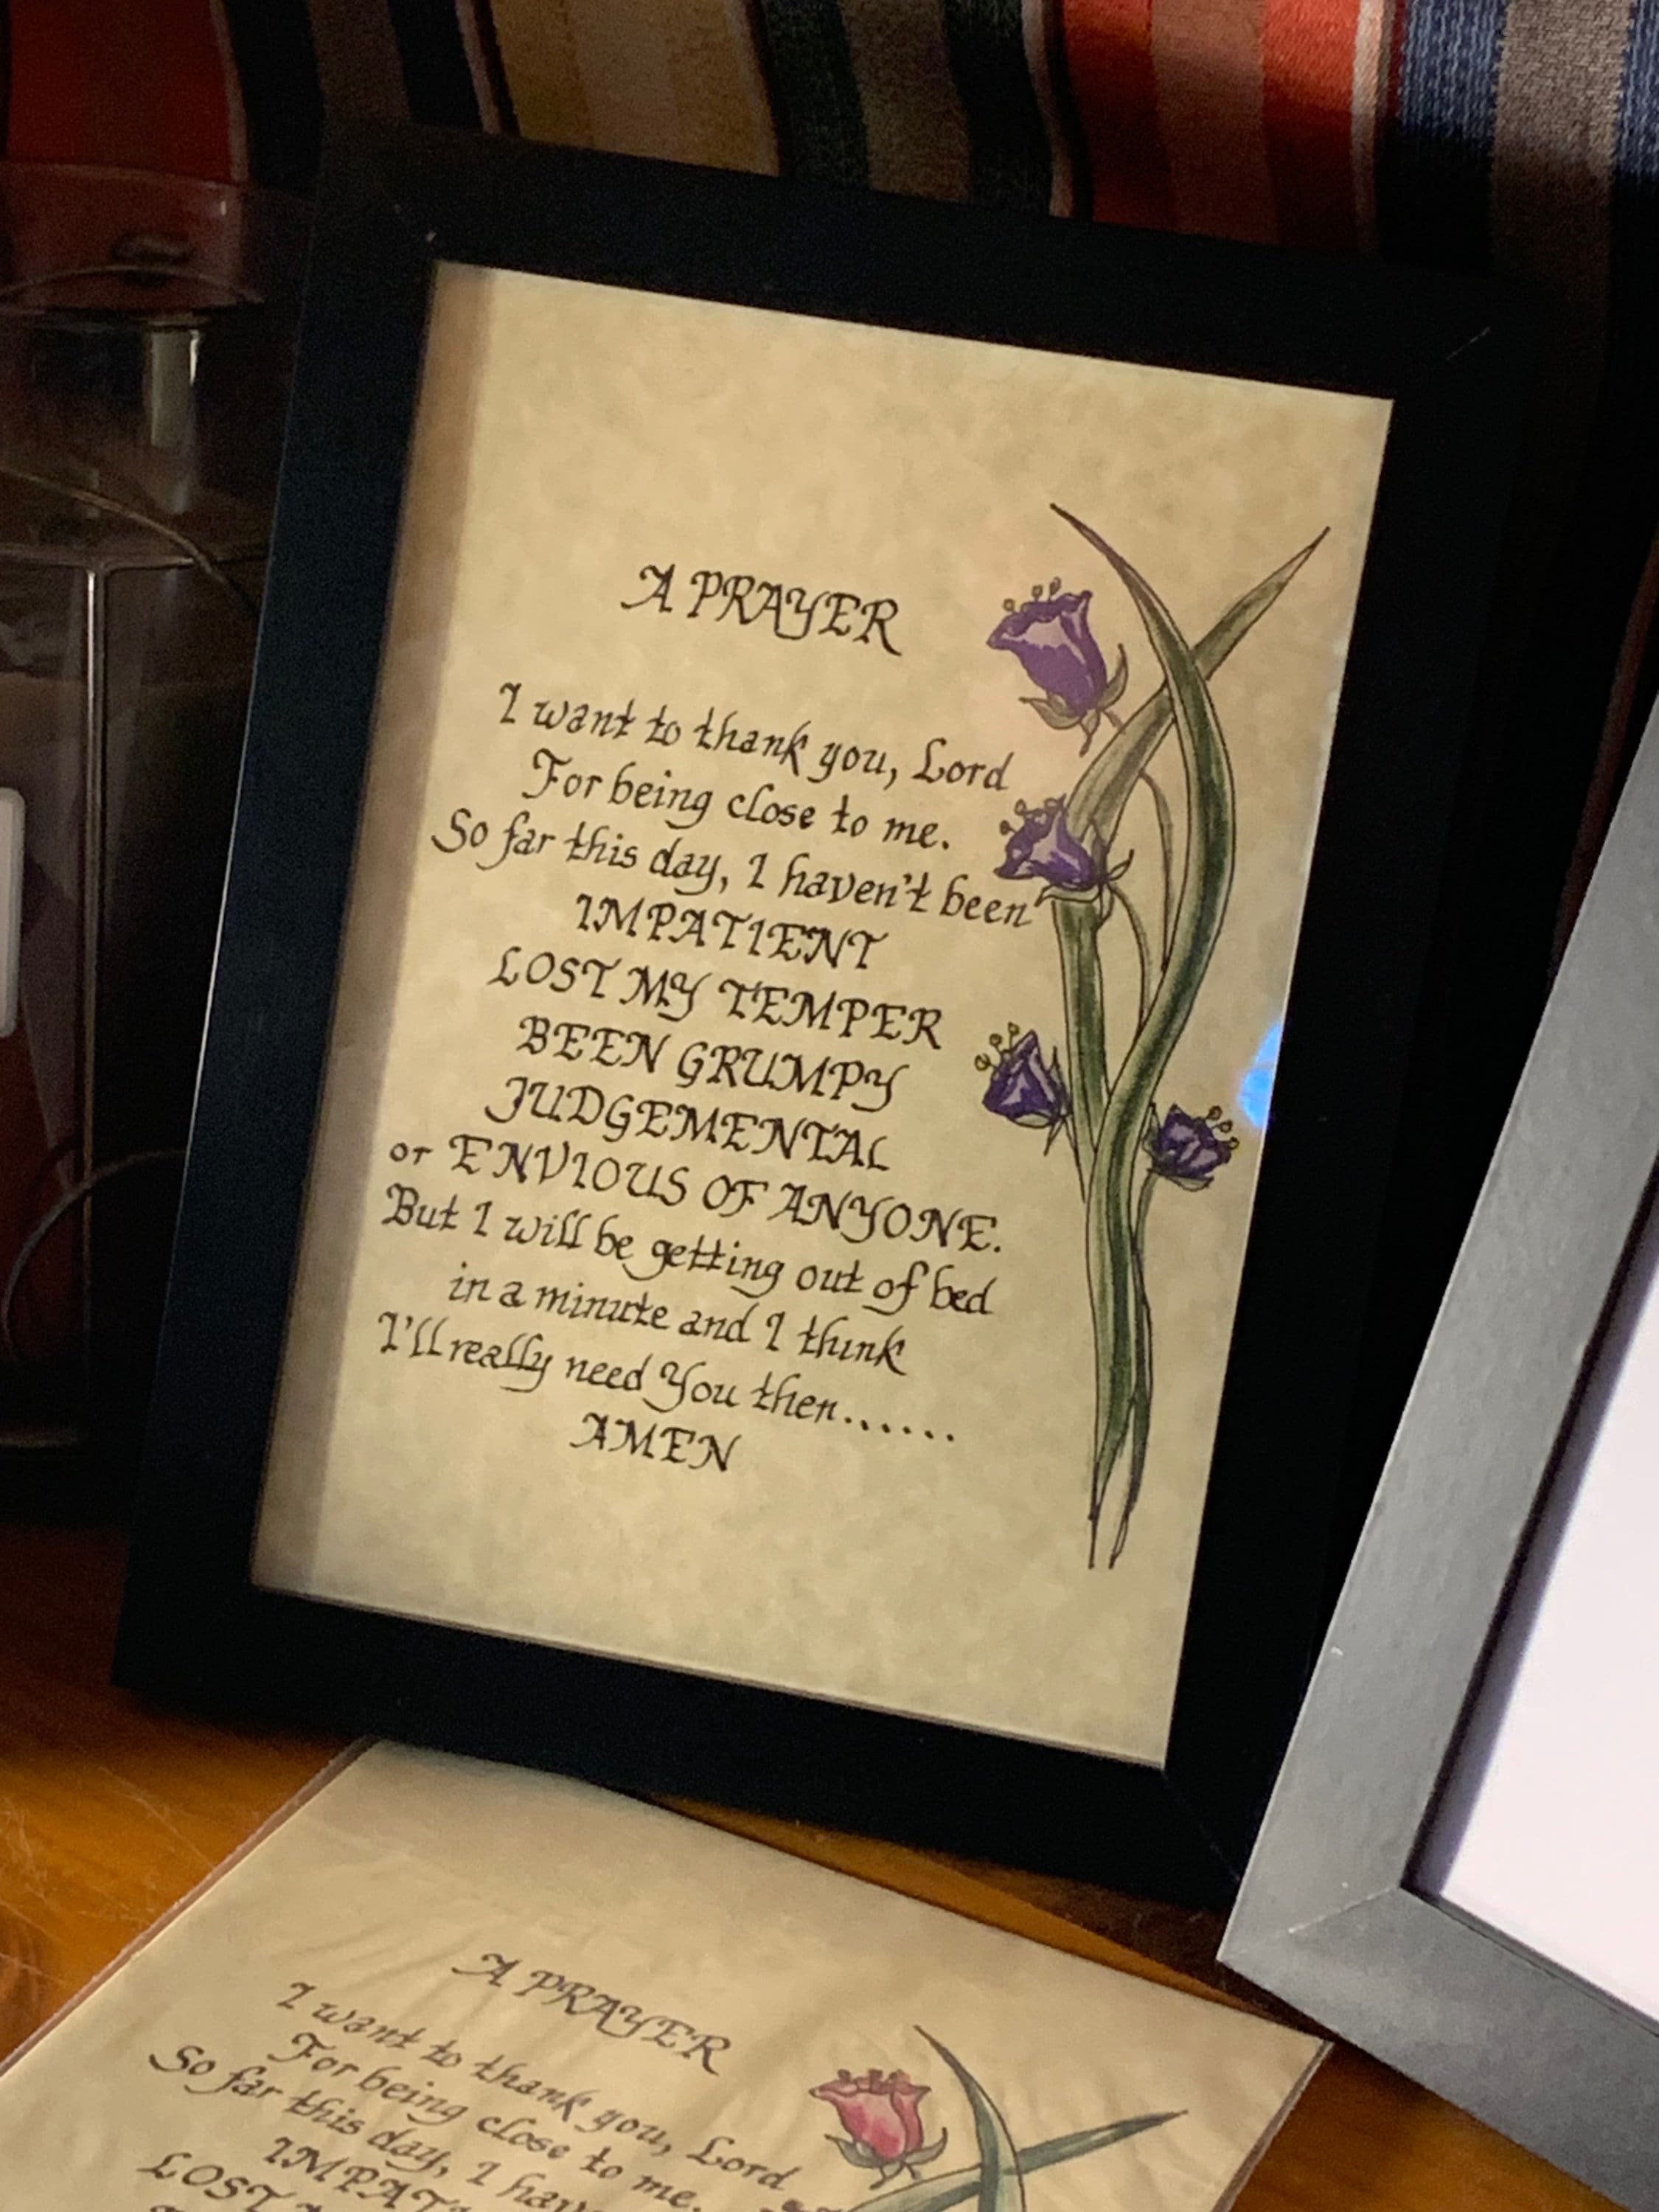 A PRAYER
I want to thank you, Lord
For being close to me.
So far this day, I haven't been
IMPATIENT
LOST MY TEMPER
BEEN GRUMPY
JUDGEMENTAL
or ENVIOUS OF ANYONE.
But I will be getting out of bed
in a minute and I think
I'll really need You then......
AMEN
A PRAYER
I want to thank you, Lord
For being close to me.
So far this day, I
LOST